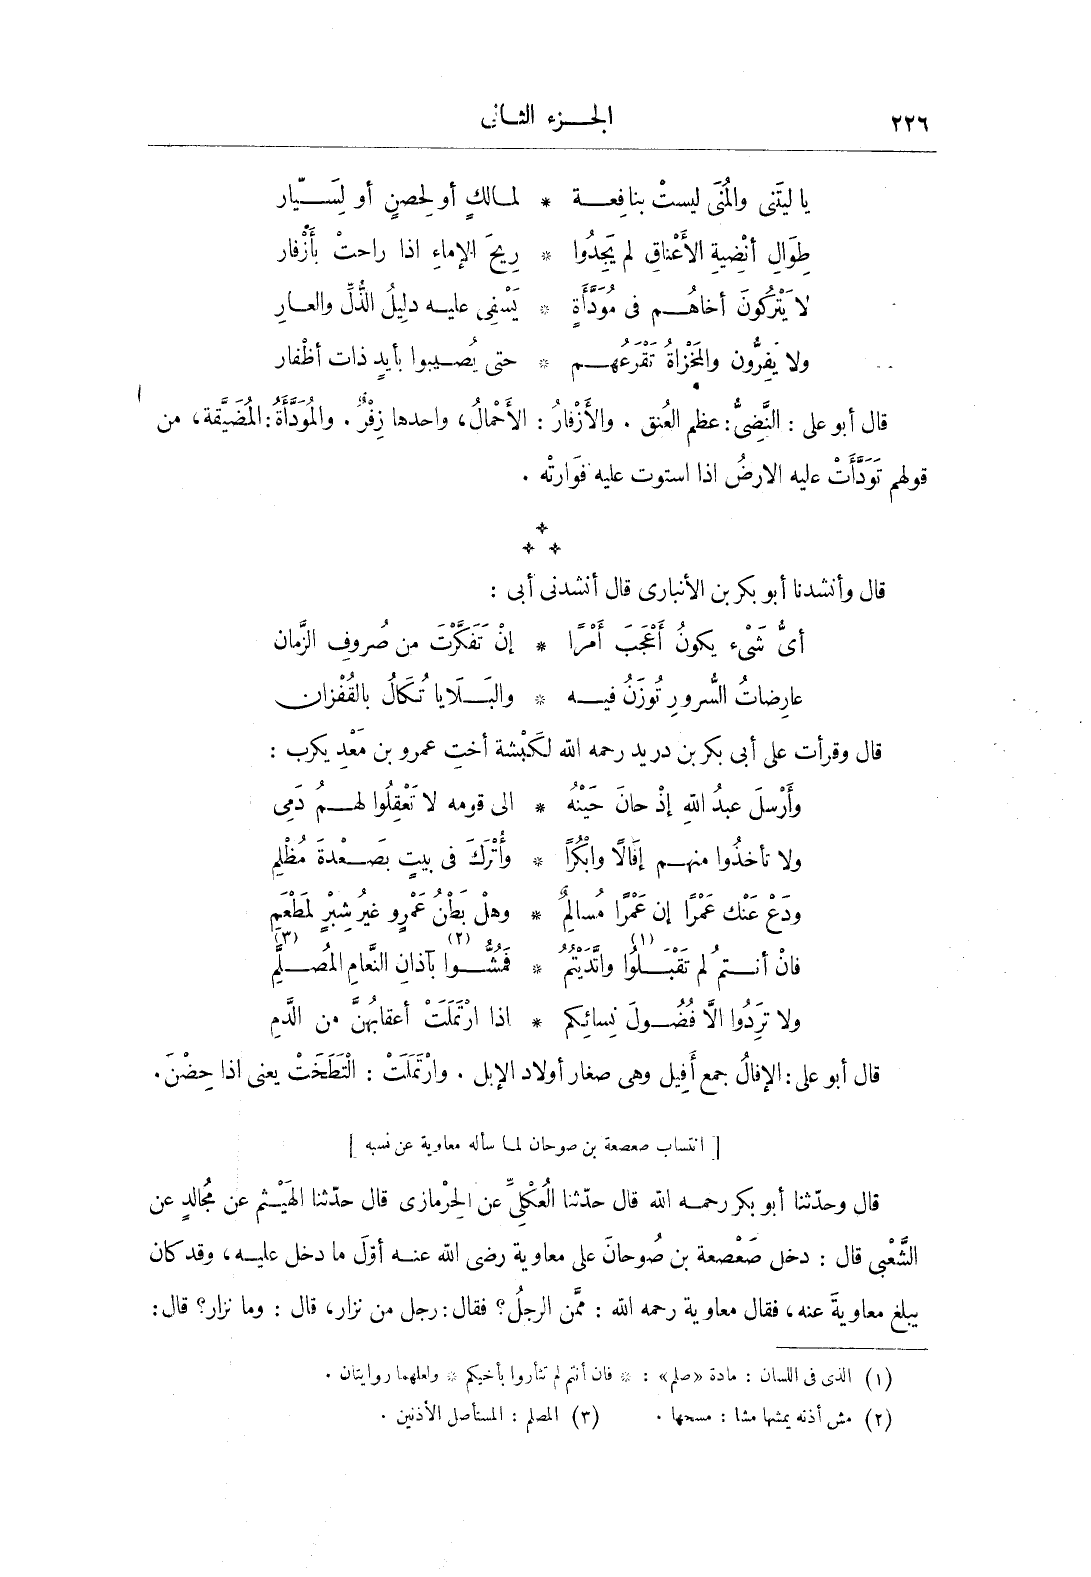 ٢٢٦ الجـــزء الثانى
يا ليتَنى والمُنَى ليستْ بنافِعـــة * لمـالكٍ أو لحِصنٍ أو لِسَـــيَّار
طِوَالِ أنْضِيةِ الأَعْناقِ لم يَجِدُوا * رِيحَ الإماءِ اذا راحتْ بأَزْفار
لا يَتْركُونَ أخاهُـــم فى مُوَدَّأَةٍ * يَسْفِى عليـه دليلُ الذُّلِّ والعـارِ
ولا يَفِرُّون والمَخْزاةُ تَقْرَعُهـــم * حتى يُصـيبوا بأيدٍ ذات أظْفار
قال أبو على : النَّضِىُّ: عظم العُنق . والأَزْفارُ : الأَحْمالُ، واحدها زِفْرٌ . والمُوَدَّأَةُ: المُضَيَّقة، من
قولهم تَوَدَّأَتْ عليه الارضُ اذا استوت عليه فوَارتْه .
قال وأنشدنا أبو بكر بن الأنبارى قال أنشدنى أبى :
أىُّ شَىْء يكونُ أَعْجَبَ أَمْرًا * إنْ تَفَكَّرْتَ من صُروفِ الزَّمان
عارِضاتُ السُّرورِ تُوزَنُ فيـــه * والبَـــلَايا تُكَالُ بالقُفْزان
قال وقرأت على أبى بكر بن دريد رحمه الله لكَبْشة أختِ عمرو بن مَعْدِ يكرب :
وأَرْسلَ عبدُ اللهِ إذْ حانَ حَيْنُه * الى قومه لا تَعْقِلُوا لهـــمُ دَمِى
ولا تأخذُوا منهـــم إفَالًا وابْكُرًا * وأُتْرَكَ فى بيتٍ بصَـــعْدةَ مُظْلِمِ
ودَعْ عَنْك عَمْرًا إن عَمْرًا مُسالمٌ * وهلْ بَطْنُ عَمْرٍو غيرُ شِبْرٍ لمَطْعَمِ
فانْ أنـــتمُ لم تَقْبَـــلُوا (١) واتَّدَيْتُمُ * فَمُشُّـــوا (٢) بآذانِ النَّعامِ المُصَـــلَّمِ (٣)
ولا تَرِدُوا الَّا فُضُـــولَ نِسائِكم * اذا ارْتَمَلَتْ أعقابُهنَّ من الدَّمِ
قال أبو على: الإفالُ جمع أَفِيل وهى صغار أولاد الإبل . وارْتَمَلَتْ : الْتَطَخَتْ يعنى اذا حِضْنَ.
[ انتساب صعصعة بن صوحان لمـا سأله معاوية عن نسبه ]
قال وحدّثنا أبو بكر رحمـه الله قال حدّثنا العُكْلِىّ عن الحِرْمازى قال حدّثنا الهَيْثم عن مُجالدٍ عن
الشَّعْبى قال : دخل صَعْصعة بن صُوحانَ على معاوية رضى الله عنـه أوّلَ ما دخل عليـه، وقد كان
يبلغ معاويةَ عنه، فقال معاوية رحمه الله : ممَّن الرجلُ؟ فقال: رجل من نزار، قال : وما نزار؟ قال:
(١) الذى فى اللسان : مادة «صلم» : * فان أنتم لم تثأروا بأخيكم * ولعلهما روايتان .
(٢) مش أذنه يمشها مشا : مسحها . (٣) المصلم : المستأصل الأذنين .